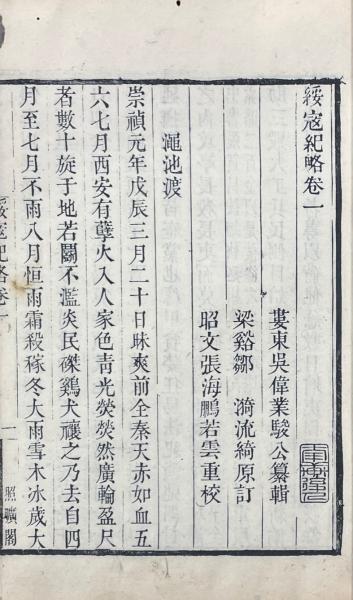 綏寇紀略卷一
婁東吳偉業駿公纂輯
梁谿鄒漪流綺原訂
昭文張海鵬若雲重校
澠池渡
崇禎元年戊辰三月二十日昧爽前全秦天赤如血五
六七月西安有孽火入人家色青光熒熒然廣輪盈尺
者數十旋于地若鬭不濫炎民磔鷄犬禳之乃去自四
月至七月不雨八月恒雨霜殺稼冬大雨雪木冰歲大
綏寇紀略卷一
一
照曠閣